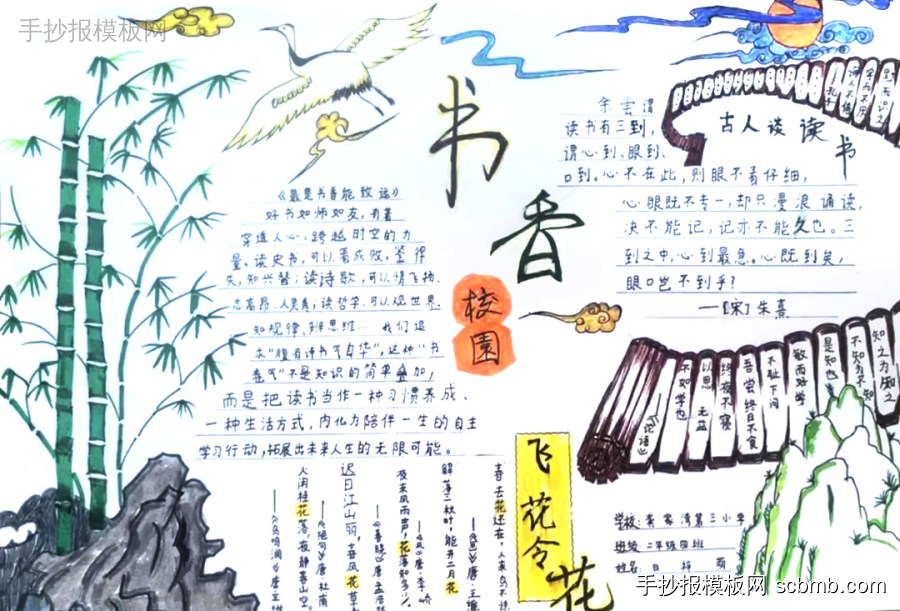 手抄报模板网
书香
校園
《最是书香能致远》
好书如师如友,有着
穿透人心,跨越时空的力
量。读史书,可以看成败、鉴得
失、知兴替;读诗歌,可以情飞扬、
志高昂、人灵秀;读哲学,可以观世界、
知规律、辨思维… 我们追
求“腹有诗书气自华”,这种“书
卷气”不是知识的简单叠加,
而是把读书当作一种习惯养成、
一种生活方式,内化为陪伴一生的自主
学习行动,拓展出未来人生的无限可能。
古人谈读书
余尝谓
读书有三到,
谓心到、眼到、
口到。心不在此,则眼不看仔细,
心眼既不专一,却只漫浪诵读,
决不能记,记亦不能久也。三
到之中,心到最急。心既到矣,
眼口岂不到乎?
——[宋]朱熹
知之为知之
不知为不知
是知也
敏而好学
不耻下问
吾尝终日不食
终夜不寝
以思 无益
不如学也
《论语》
飞花令
花
春去花还在,人来鸟不惊
解落三秋叶,能开二月花
——《风》唐·李峤
夜来风雨声,花落知多少。
迟日江山丽,春风花草
——《绝句》唐 杜甫
人闲桂花落,夜静春山空。
学校:
班级:二年级四班
姓名:
手抄报模板网 scbmb.com